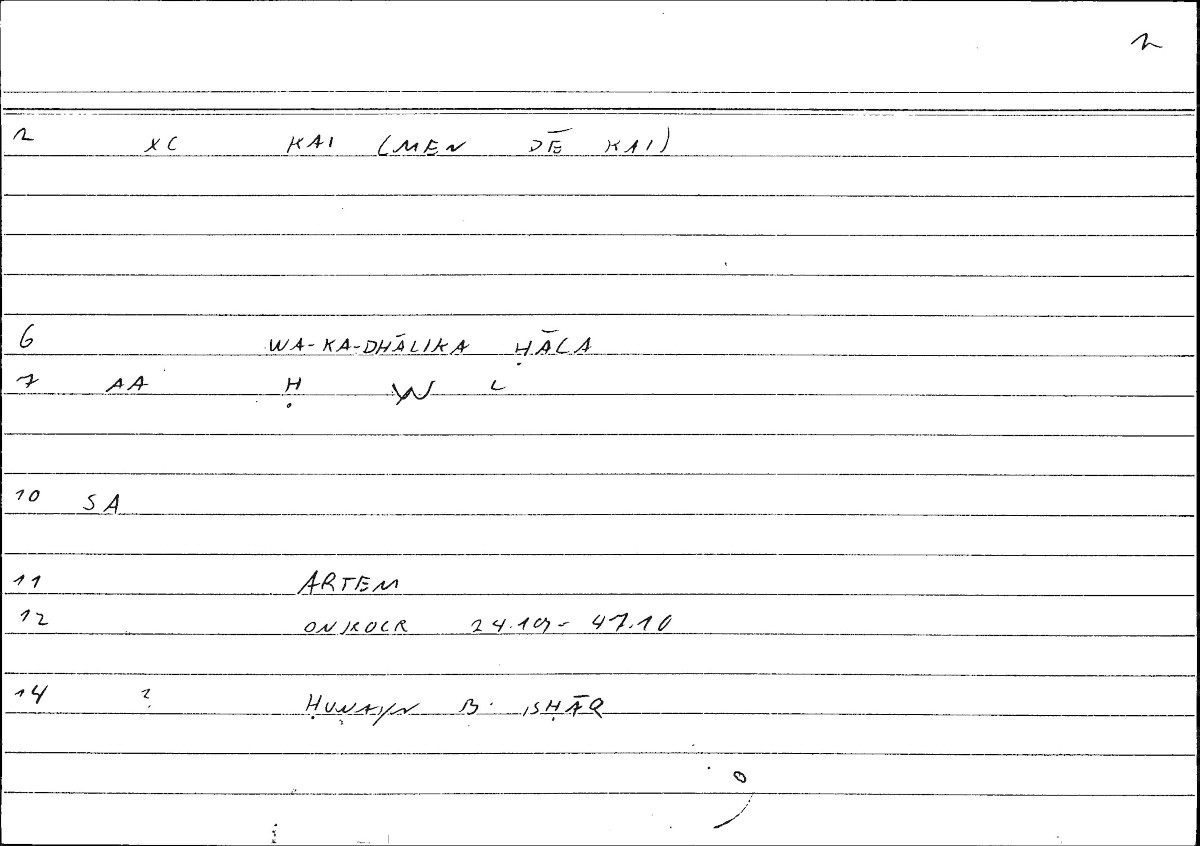 2
2 XC KAI (MEN DĒ KAI)
6 WA-KA-DHĀLIKA ḤĀLA
7 AA Ḥ W L
10 SA
11 ARTEM
12 24.10 - 47.10
14 ? ḤUNAYN B. ISḤĀQ